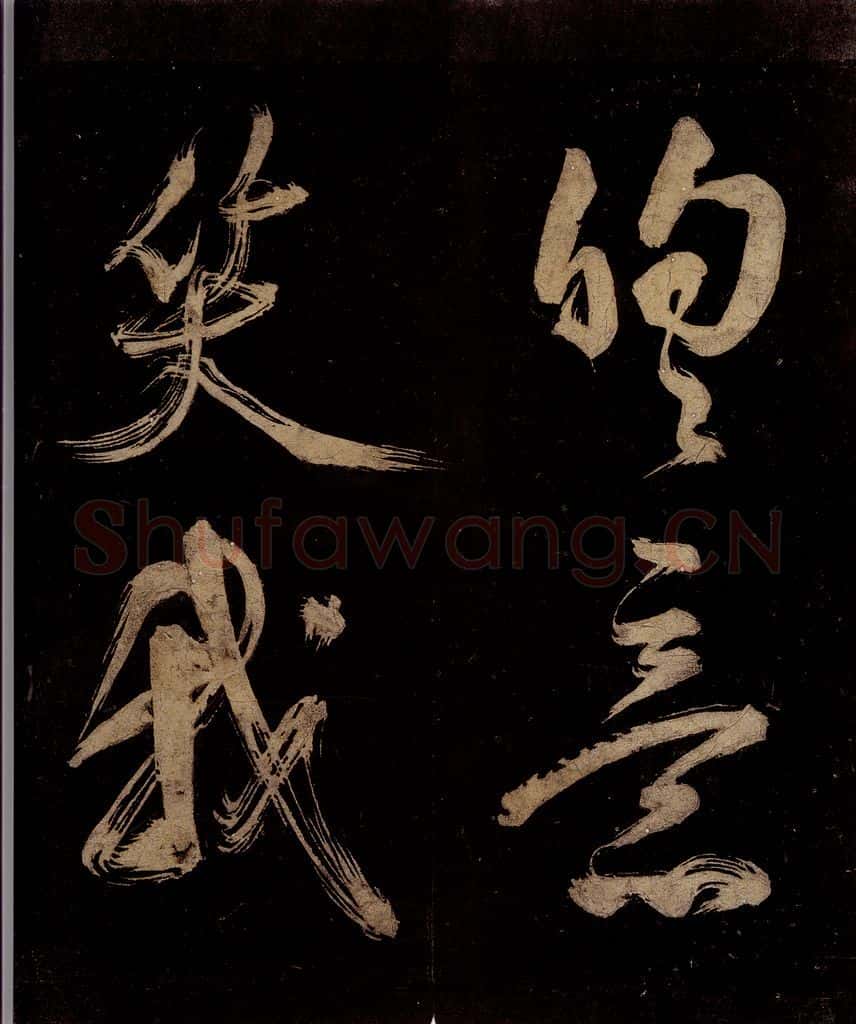 的意
笑我
Shufawang.CN